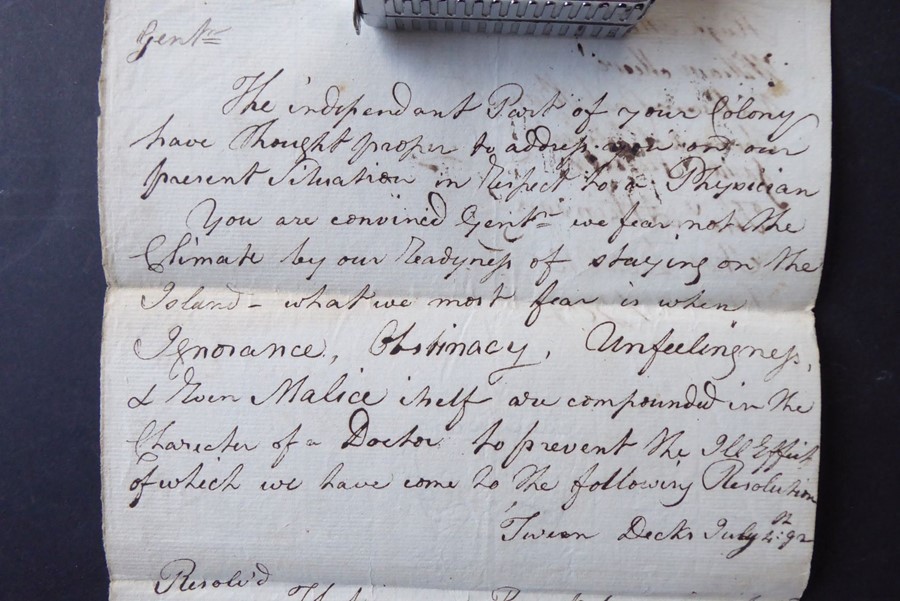 Gentn
The independant Part of your Colony
have thought proper to address you on our
present Situation in respect to a Physician
You are convinced Gentn we fear not the
Climate by our Readyness of staying on the
Island – what we most fear is when
Ignorance, Obstinacy, Unfeelingness,
& Even Malice itself are compounded in the
Character of a Doctor to prevent the Ill Effect
of which we have come to the following Resolution
Tween Decks July 4th: 92
Resolv'd